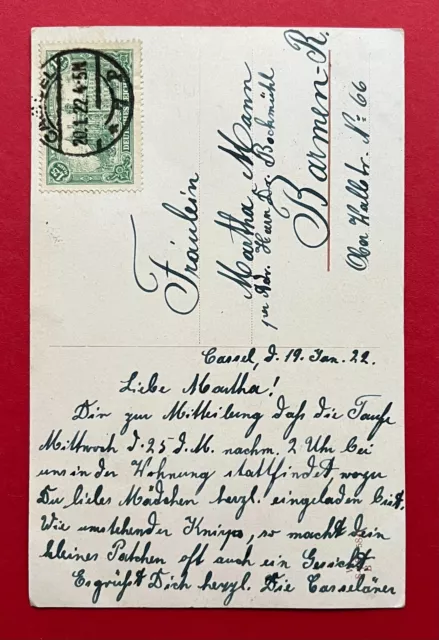 CASSEL
20.1.22. 4-5N
Fräulein
Martha Mann
per Adr. Herrn Dr. Bochmühl
Barmen-R.
Ober Wallstr. No 66
Cassel, d. 19. Jan. 22.
Liebe Martha!
Dir zur Mitteilung daß die Taufe
Mittwoch d. 25 d. M. nachm. 2 Uhr bei
uns in der Wohnung stattfindet wozu
Du liebes Mädchen herzl. eingeladen bist.
Wie umstehender so macht dein
kleines Patchen oft auch ein Gesicht
Es grüßt Dich herzl. Die Casseläner